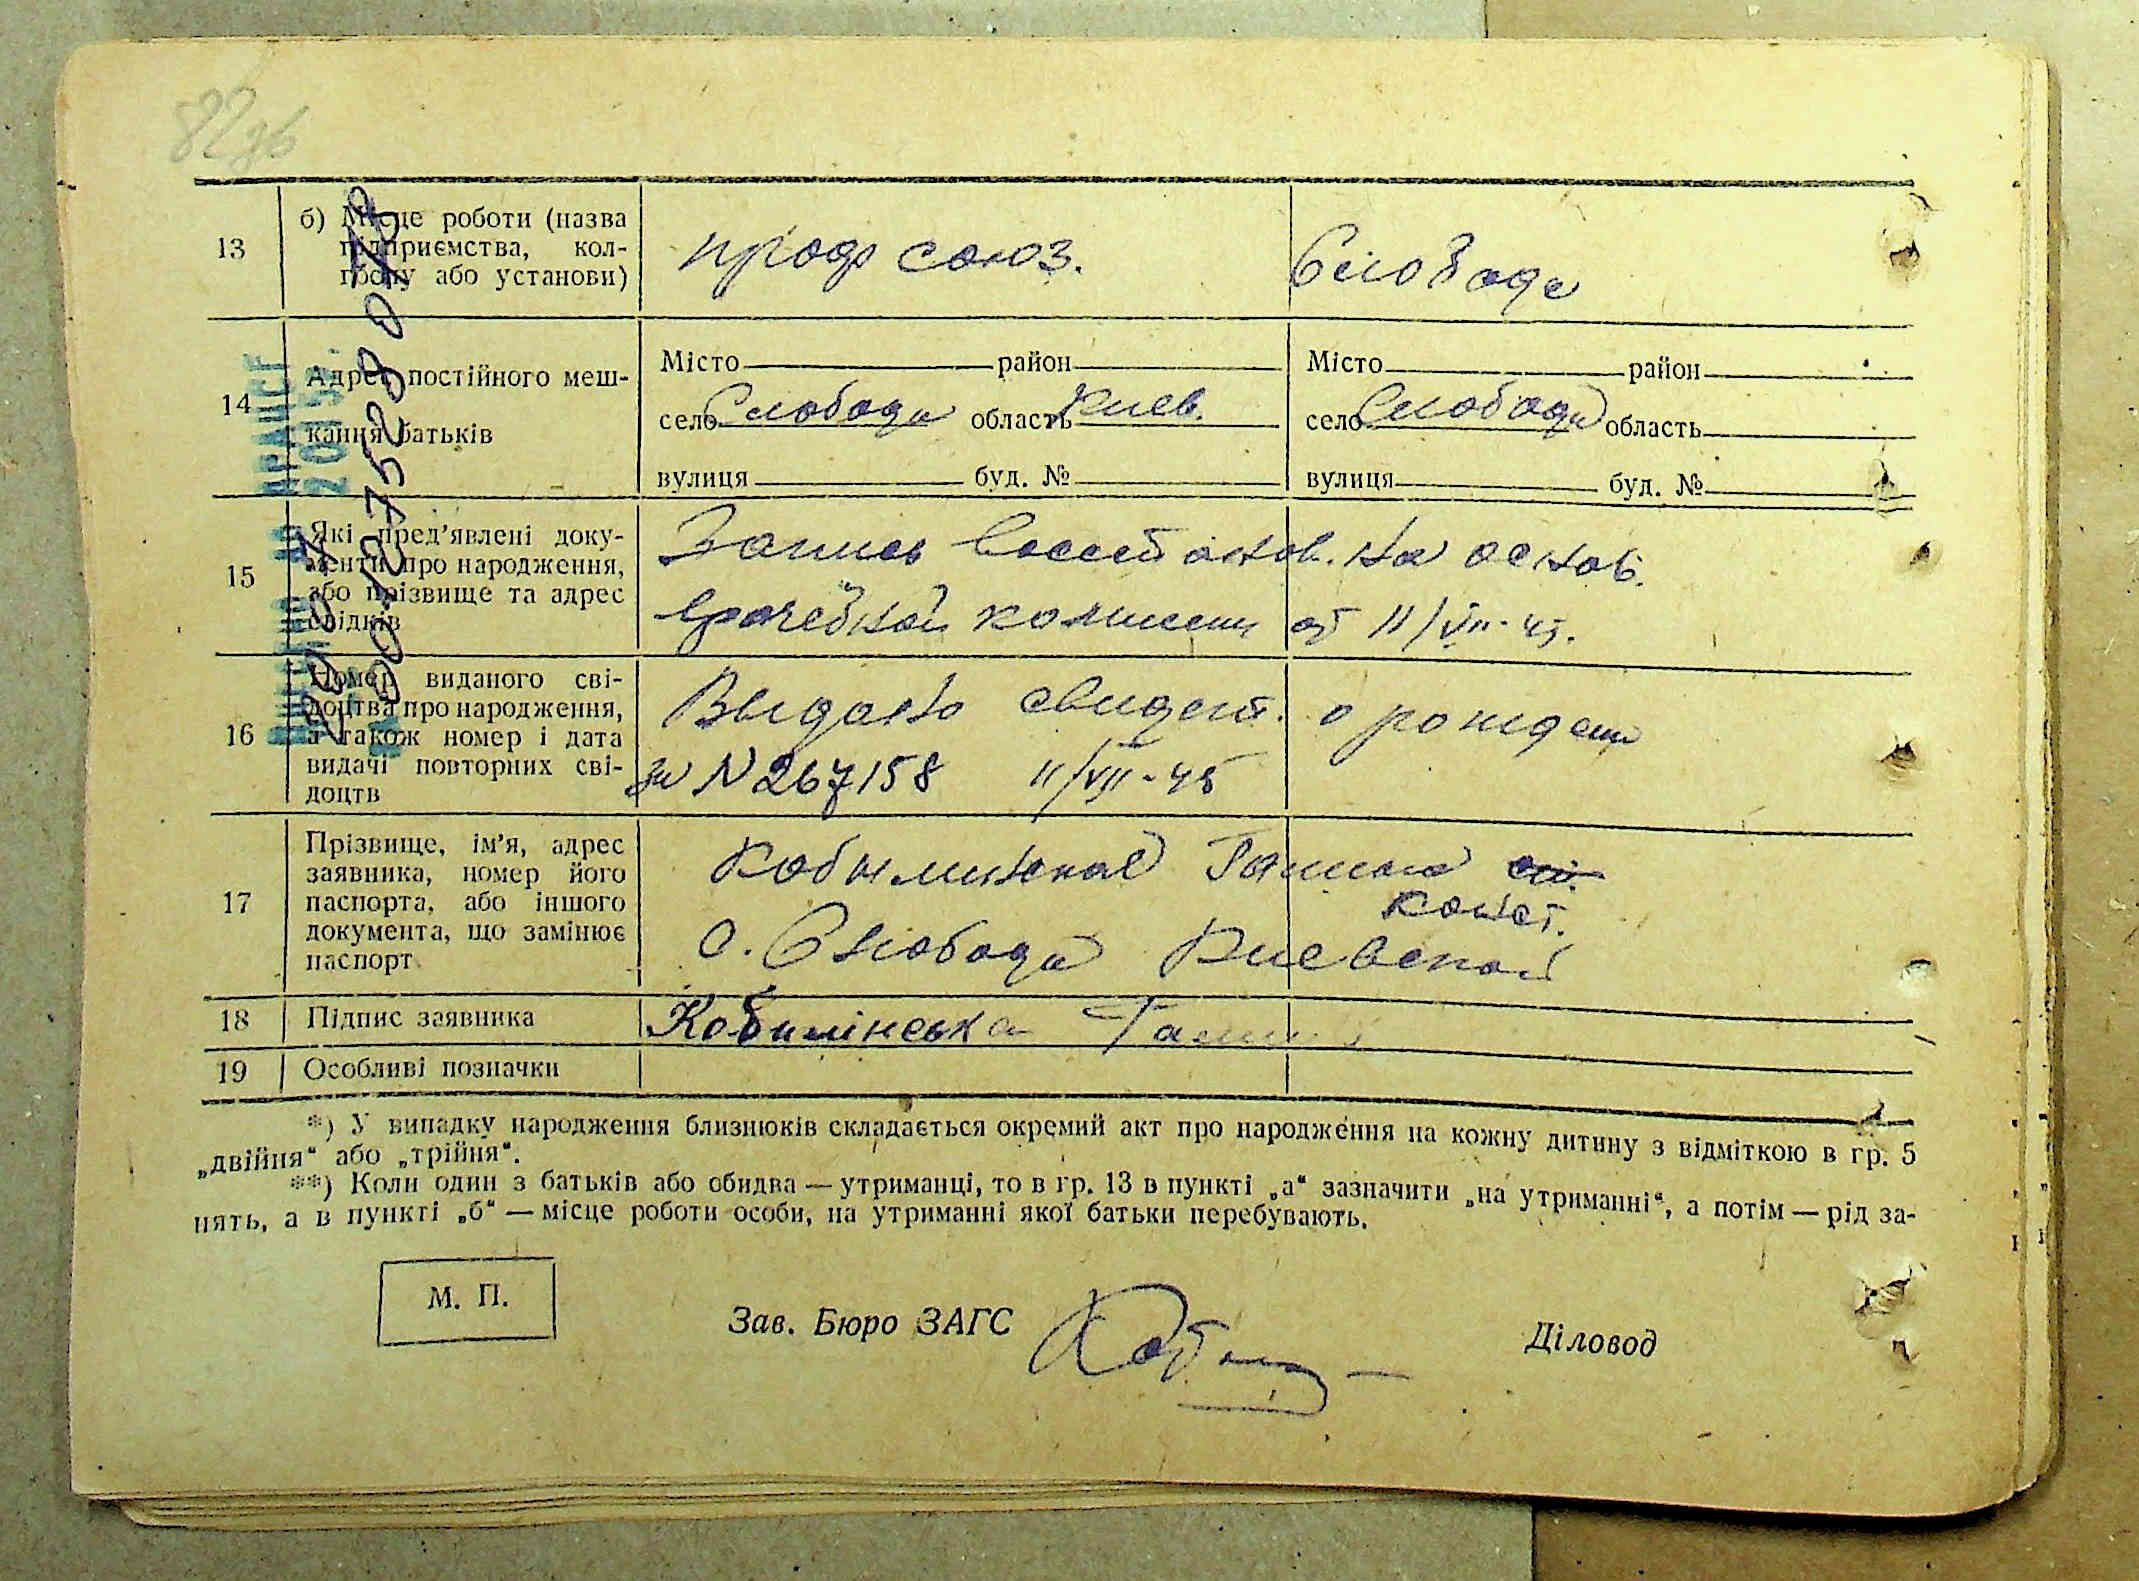 82зв
13
б) Місце роботи (назва
підприємства, кол-
госпу або установи)
проф союз.
Слобода
14
Адрес постійного меш-
кання батьків
Місто район
село Слобода область Киев.
вулиця буд. №
Місто район
село Слобода область
вулиця буд. №
15
Які пред'явлені доку-
менти про народження,
або прізвище та адрес
свідків
Запись восстанов. на основ.
врачебной комиссии от 11/VII-45.
16
Номер виданого сві-
доцтва про народження,
а також номер і дата
видачі повторних сві-
доцтв
Выдано свидет. о рожден
за N 267158 11/VII-45
17
Прізвище, ім'я, адрес
заявника, номер його
паспорта, або іншого
документа, що замінює
паспорт
Кобылинская Галина
конст.
с. Слобода Киевской
18
Підпис заявника
Кобилінська Галина
19
Особливі позначки
*) У випадку народження близнюків складається окремий акт про народження на кожну дитину з відміткою в гр. 5
„двійня“ або „трійня“.
**) Коли один з батьків або обидва — утриманці, то в гр. 13 в пункті „а“ зазначити „на утриманні“, а потім — рід за-
нять, а в пункті „б“ — місце роботи особи, на утриманні якої батьки перебувають.
М. П.
Зав. Бюро ЗАГС
Діловод